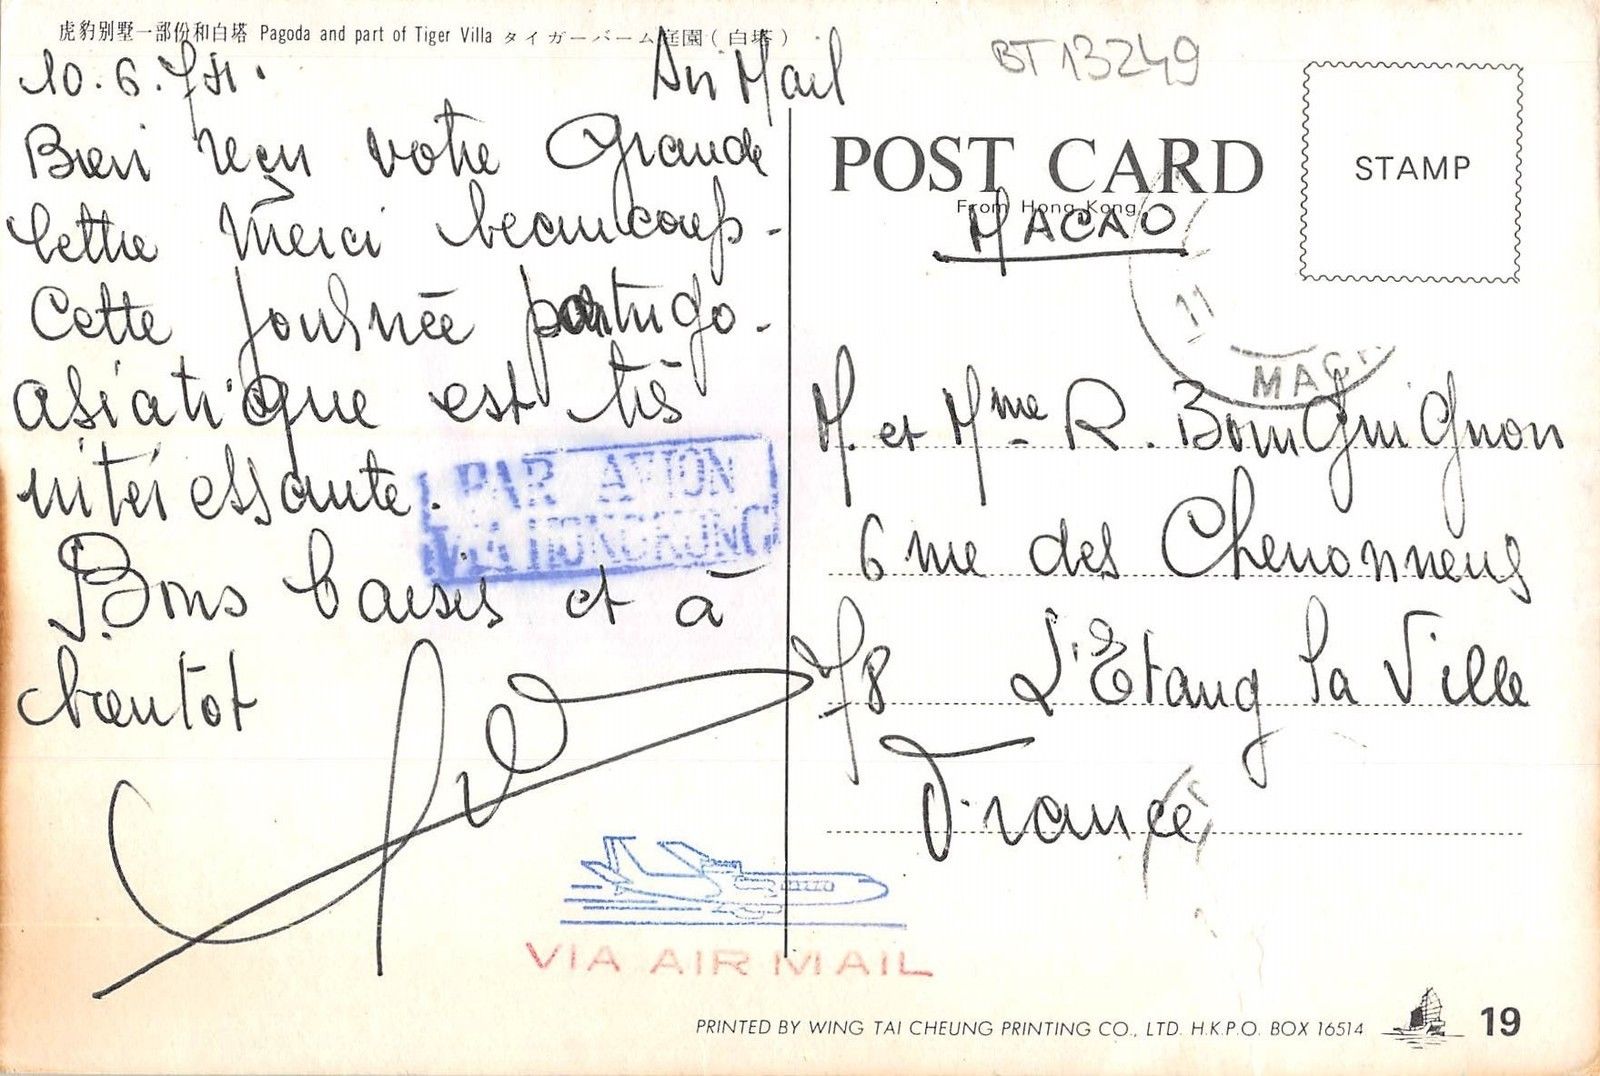 虎豹別墅一部份和白塔 Pagoda and part of Tiger Villa タイガーバーム庭園(白塔)
10.6.
Air Mail
Bien reçu votre Grande
lettre Merci beaucoup-
Cette journée portugo-
asiatique est très
intéressante.
Bons baisers et à
bientot
PAR AVION
VIA HONGKONG
VIA AIR MAIL
BT13249
POST CARD
From Hong Kong
MACAO
STAMP
11
MAC
M. et Mme R. BourGuiGnon
6 rue des
78 L'Etang la Ville
France
PRINTED BY WING TAI CHEUNG PRINTING CO., LTD. H.K.P.O. BOX 16514
19